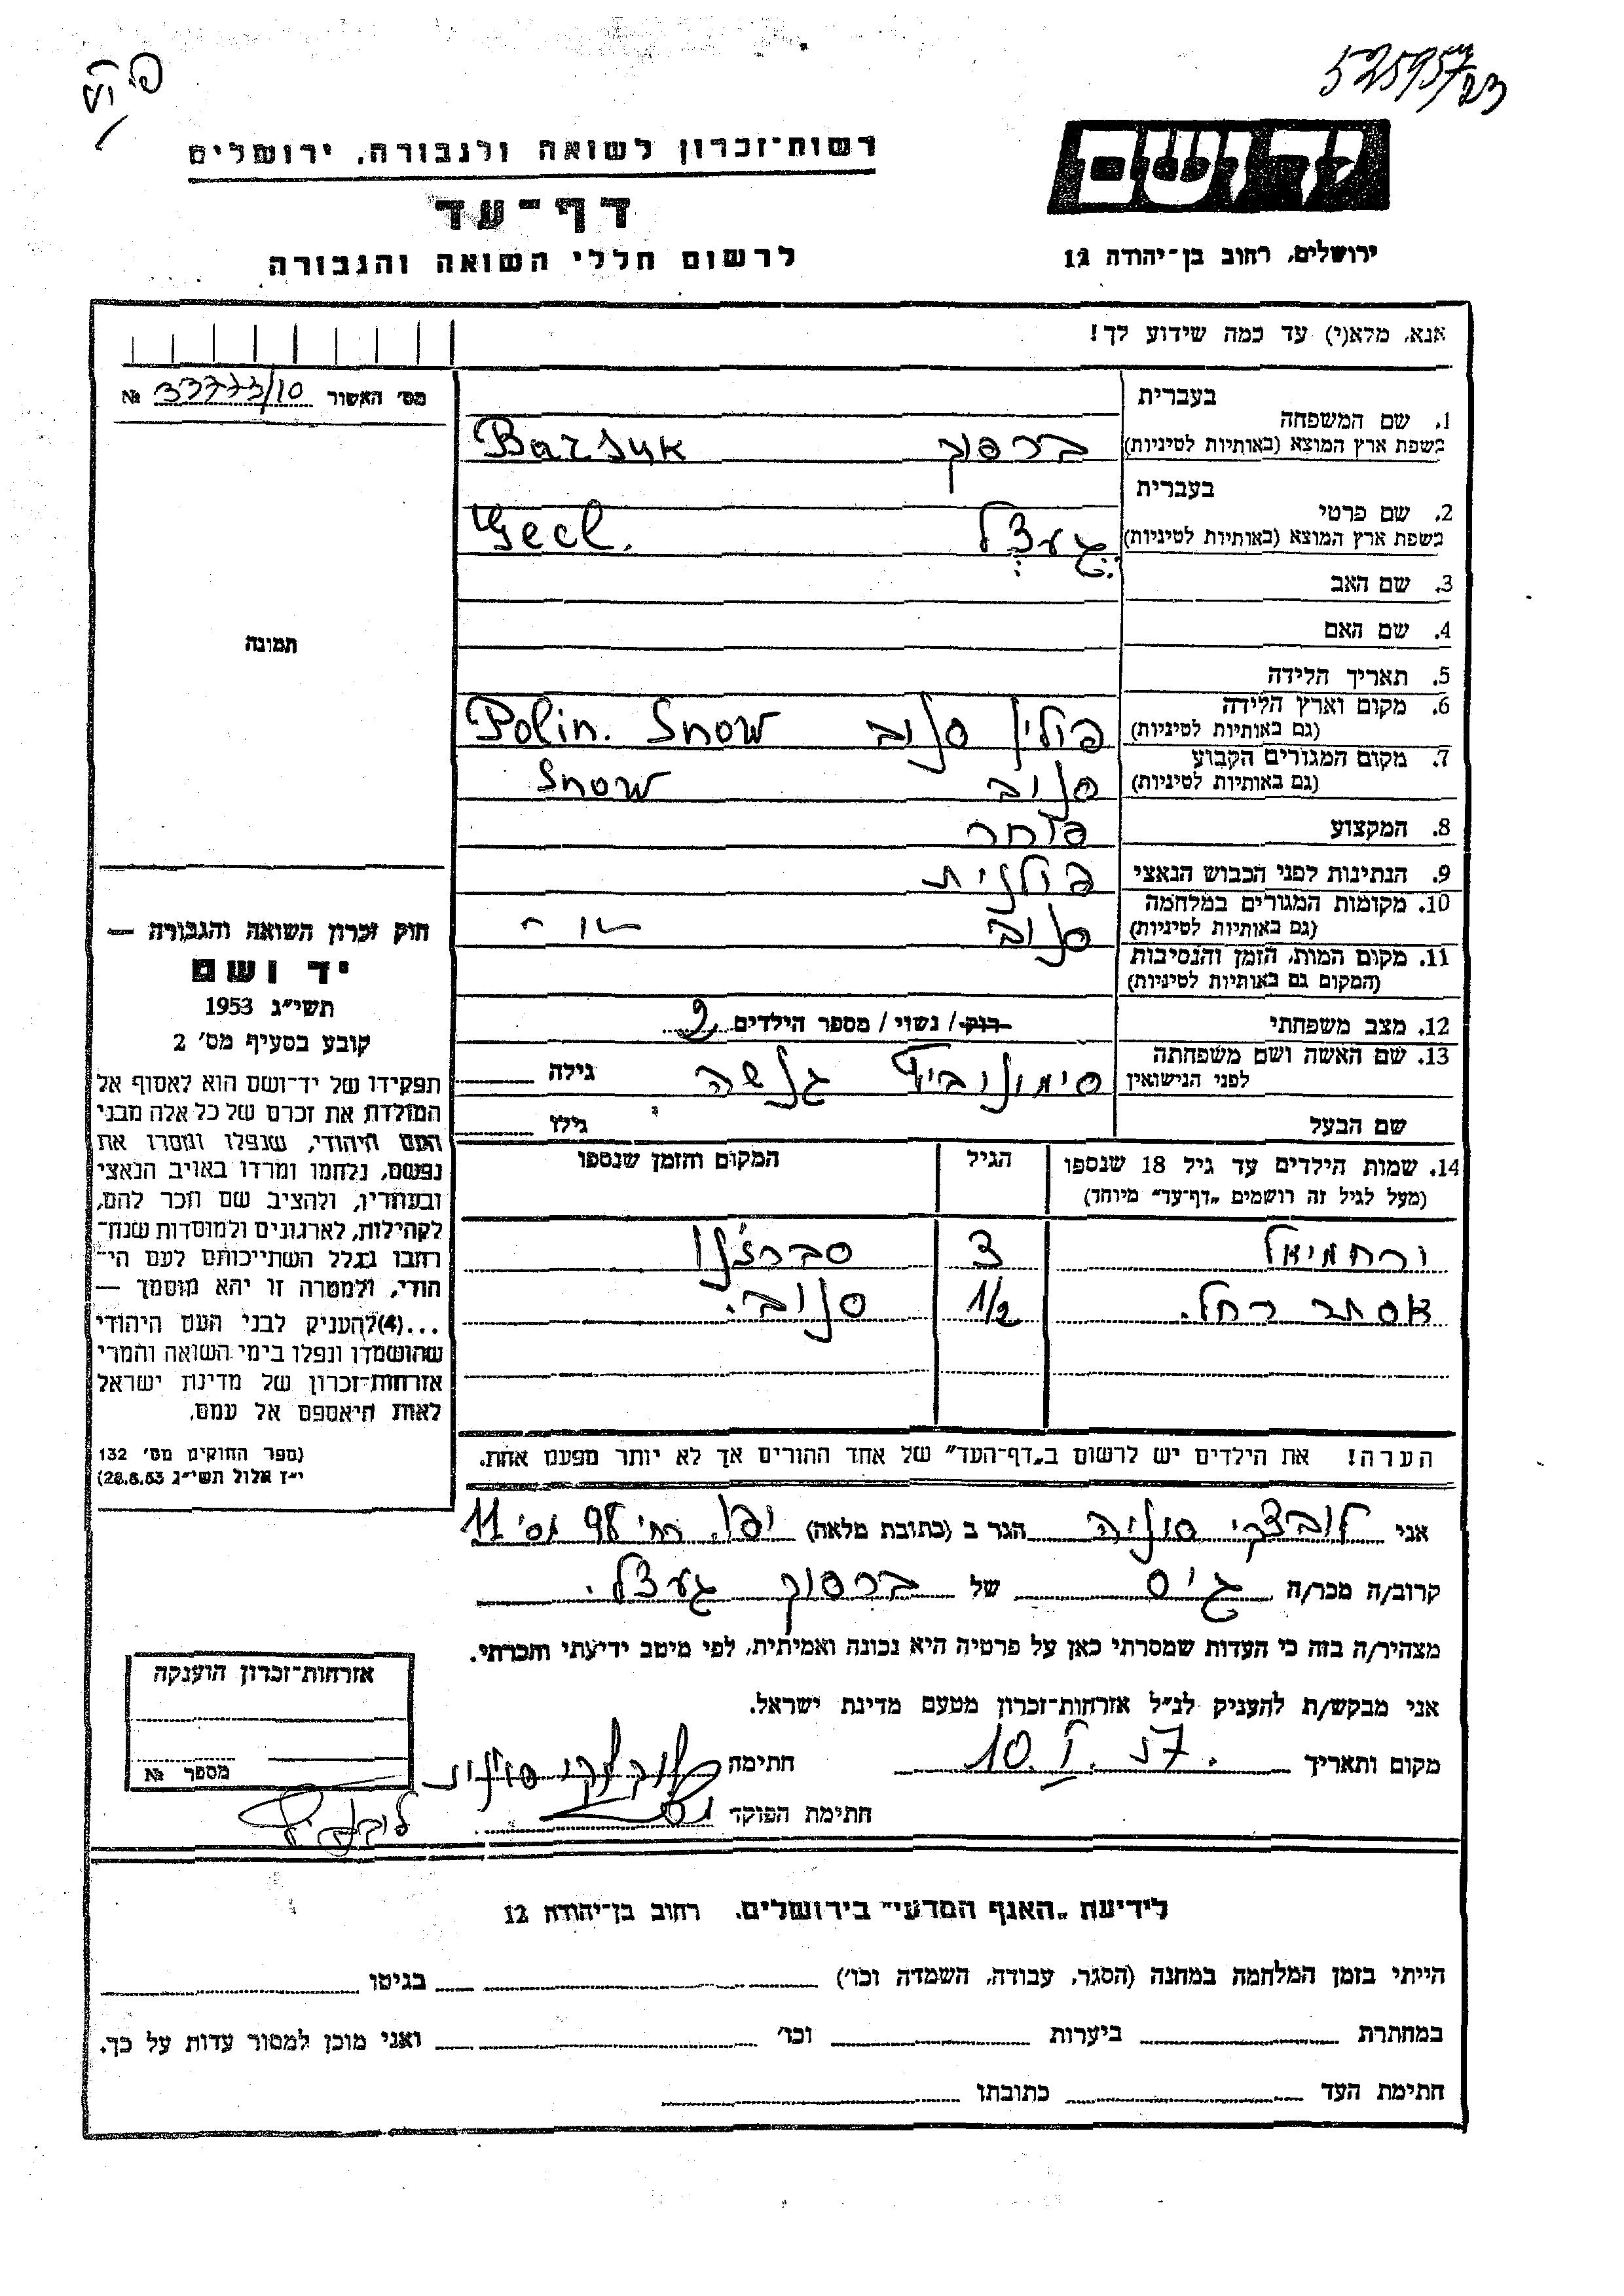 525957/23
רשות־זכרון לשואה ולגבורה, ירושלים
דף־עד
לרשום חללי השואה והגבורה
יד ושם
ירושלים, רחוב בן־יהודה 12
אנא, מלא(י) עד כמה שידוע לך!
מס׳ האשור 33773/10 №
תמונה
בעברית
1. שם המשפחה
בשפת ארץ המוצא (באותיות לטיניות) ברסוק Barsuk
בעברית
2. שם פרטי
בשפת ארץ המוצא (באותיות לטיניות) געצל Gecl.
3. שם האב
4. שם האם
5. תאריך הלידה
6. מקום וארץ הלידה
(גם באותיות לטיניות) פולין סנוב Polin. Snow
7. מקום המגורים הקבוע
(גם באותיות לטיניות) סנוב Snow
8. המקצוע סוחר
9. הנתינות לפני הכבוש הנאצי פולנית
10. מקומות המגורים במלחמה
(גם באותיות לטיניות) סנוב
11. מקום המות, הזמן והנסיבות
(המקום גם באותיות לטיניות)
12. מצב משפחתי רוק / נשוי / מספר הילדים 2
13. שם האשה ושם משפחתה
לפני הנישואין סימונוביץ גנשה גילה
שם הבעל גילו
14. שמות הילדים עד גיל 18 שנספו הגיל המקום והזמן שנספו
(מעל לגיל זה רושמים „דף־עד” מיוחד)
ירחמיאל 3 סברז׳נו
אסתר רחל. 1/2 סנוב.
הערה! את הילדים יש לרשום ב„דף־העד” של אחד ההורים אך לא יותר מפעם אחת.
חוק זכרון השואה והגבורה —
יד ושם
תשי״ג 1953
קובע בסעיף מס׳ 2
תפקידו של יד־ושם הוא לאסוף אל
המולדת את זכרם של כל אלה מבני
העם היהודי, שנפלו ומסרו את
נפשם, נלחמו ומרדו באויב הנאצי
ובעוזריו, ולהציב שם וזכר להם,
לקהילות, לארגונים ולמוסדות שנח־
רבו בגלל השתייכותם לעם הי־
הודי, ולמטרה זו יהא מוסמך —
...(4) להעניק לבני העם היהודי
שהושמדו ונפלו בימי השואה והמרי
אזרחות־זכרון של מדינת ישראל
לאות היאספם אל עמם.
(ספר החוקים מס׳ 132
י״ז אלול תשי״ג 28.8.53)
אני לובצקי סוניה הגר ב (כתובת מלאה) יפו, רח׳ 98 מס׳ 11
קרוב/ה מכר/ה גיס של ברסוק געצל.
מצהיר/ה בזה כי העדות שמסרתי כאן על פרטיה היא נכונה ואמיתית, לפי מיטב ידיעתי והכרתי.
אני מבקש/ת להעניק לנ״ל אזרחות־זכרון מטעם מדינת ישראל.
מקום ותאריך 10. I. 57. חתימה לובצקי סוניה
חתימת הפוקד
אזרחות־זכרון הוענקה
מספר №
לידיעת „האגף המדעי” בירושלים, רחוב בן־יהודה 12
הייתי בזמן המלחמה במחנה (הסגר, עבודה, השמדה וכו׳) בגיטו
במחתרת ביערות וכו׳ ואני מוכן למסור עדות על כך.
חתימת העד כתובתו